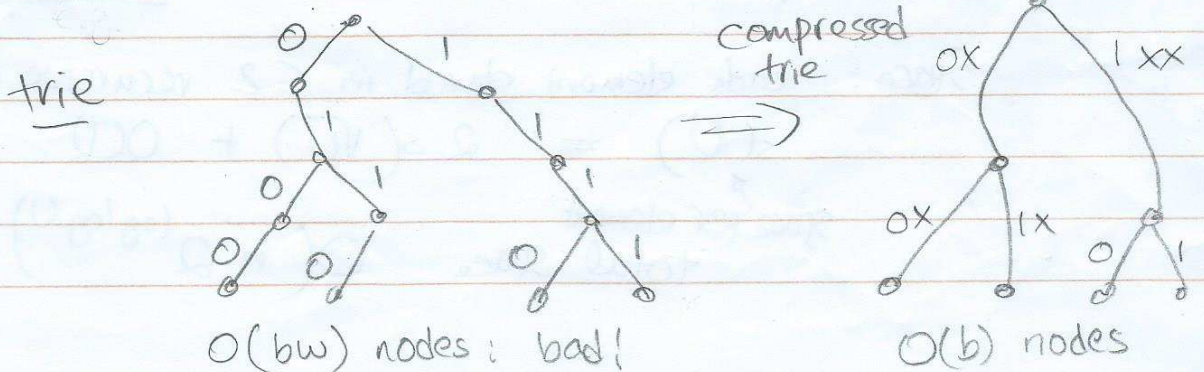 trie
0 1
1 1
0 1 1
0 0 0 1
O(bw) nodes: bad!
compressed
trie
0x 1xx
0x 1x 0 1
O(b) nodes